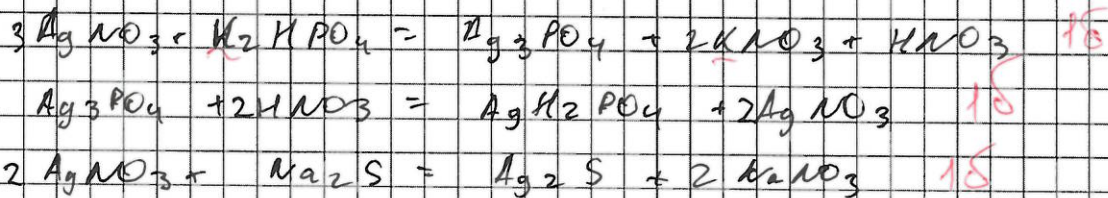 3 AgNO3 + K2HPO4 = Ag3PO4 + 2KNO3 + HNO3 1б
Ag3PO4 + 2HNO3 = AgH2PO4 + 2AgNO3 1б
2 AgNO3 + Na2S = Ag2S + 2 NaNO3 1б